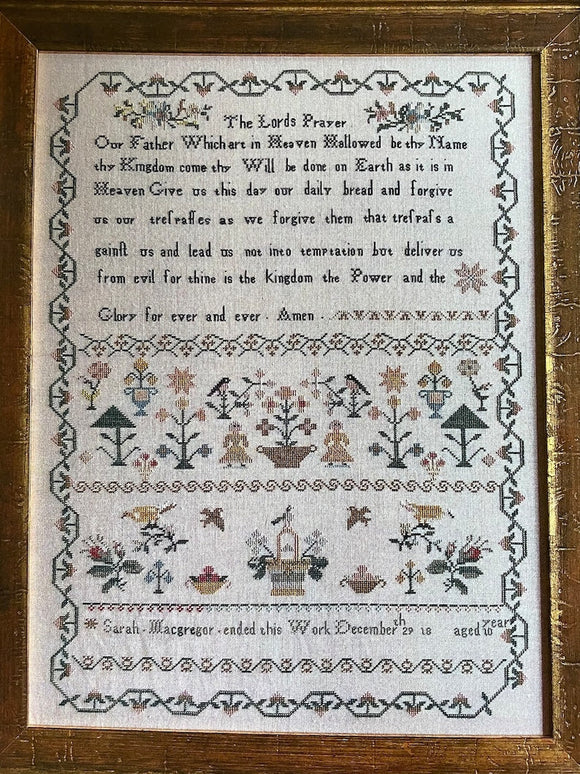 The Lords Prayer
Our Father Which art in Heaven Hallowed be thy Name
thy Kingdom come thy Will be done on Earth as it is in
Heaven Give us this day our daily bread and forgive
us our treſpaſſes as we forgive them that treſpaſs a
gainſt us and lead us not into temptation but deliver us
from evil for thine is the Kingdom the Power and the
Glory for ever and ever . Amen .
Sarah . Macgregor . ended this Work December 29th 18 aged 10 year